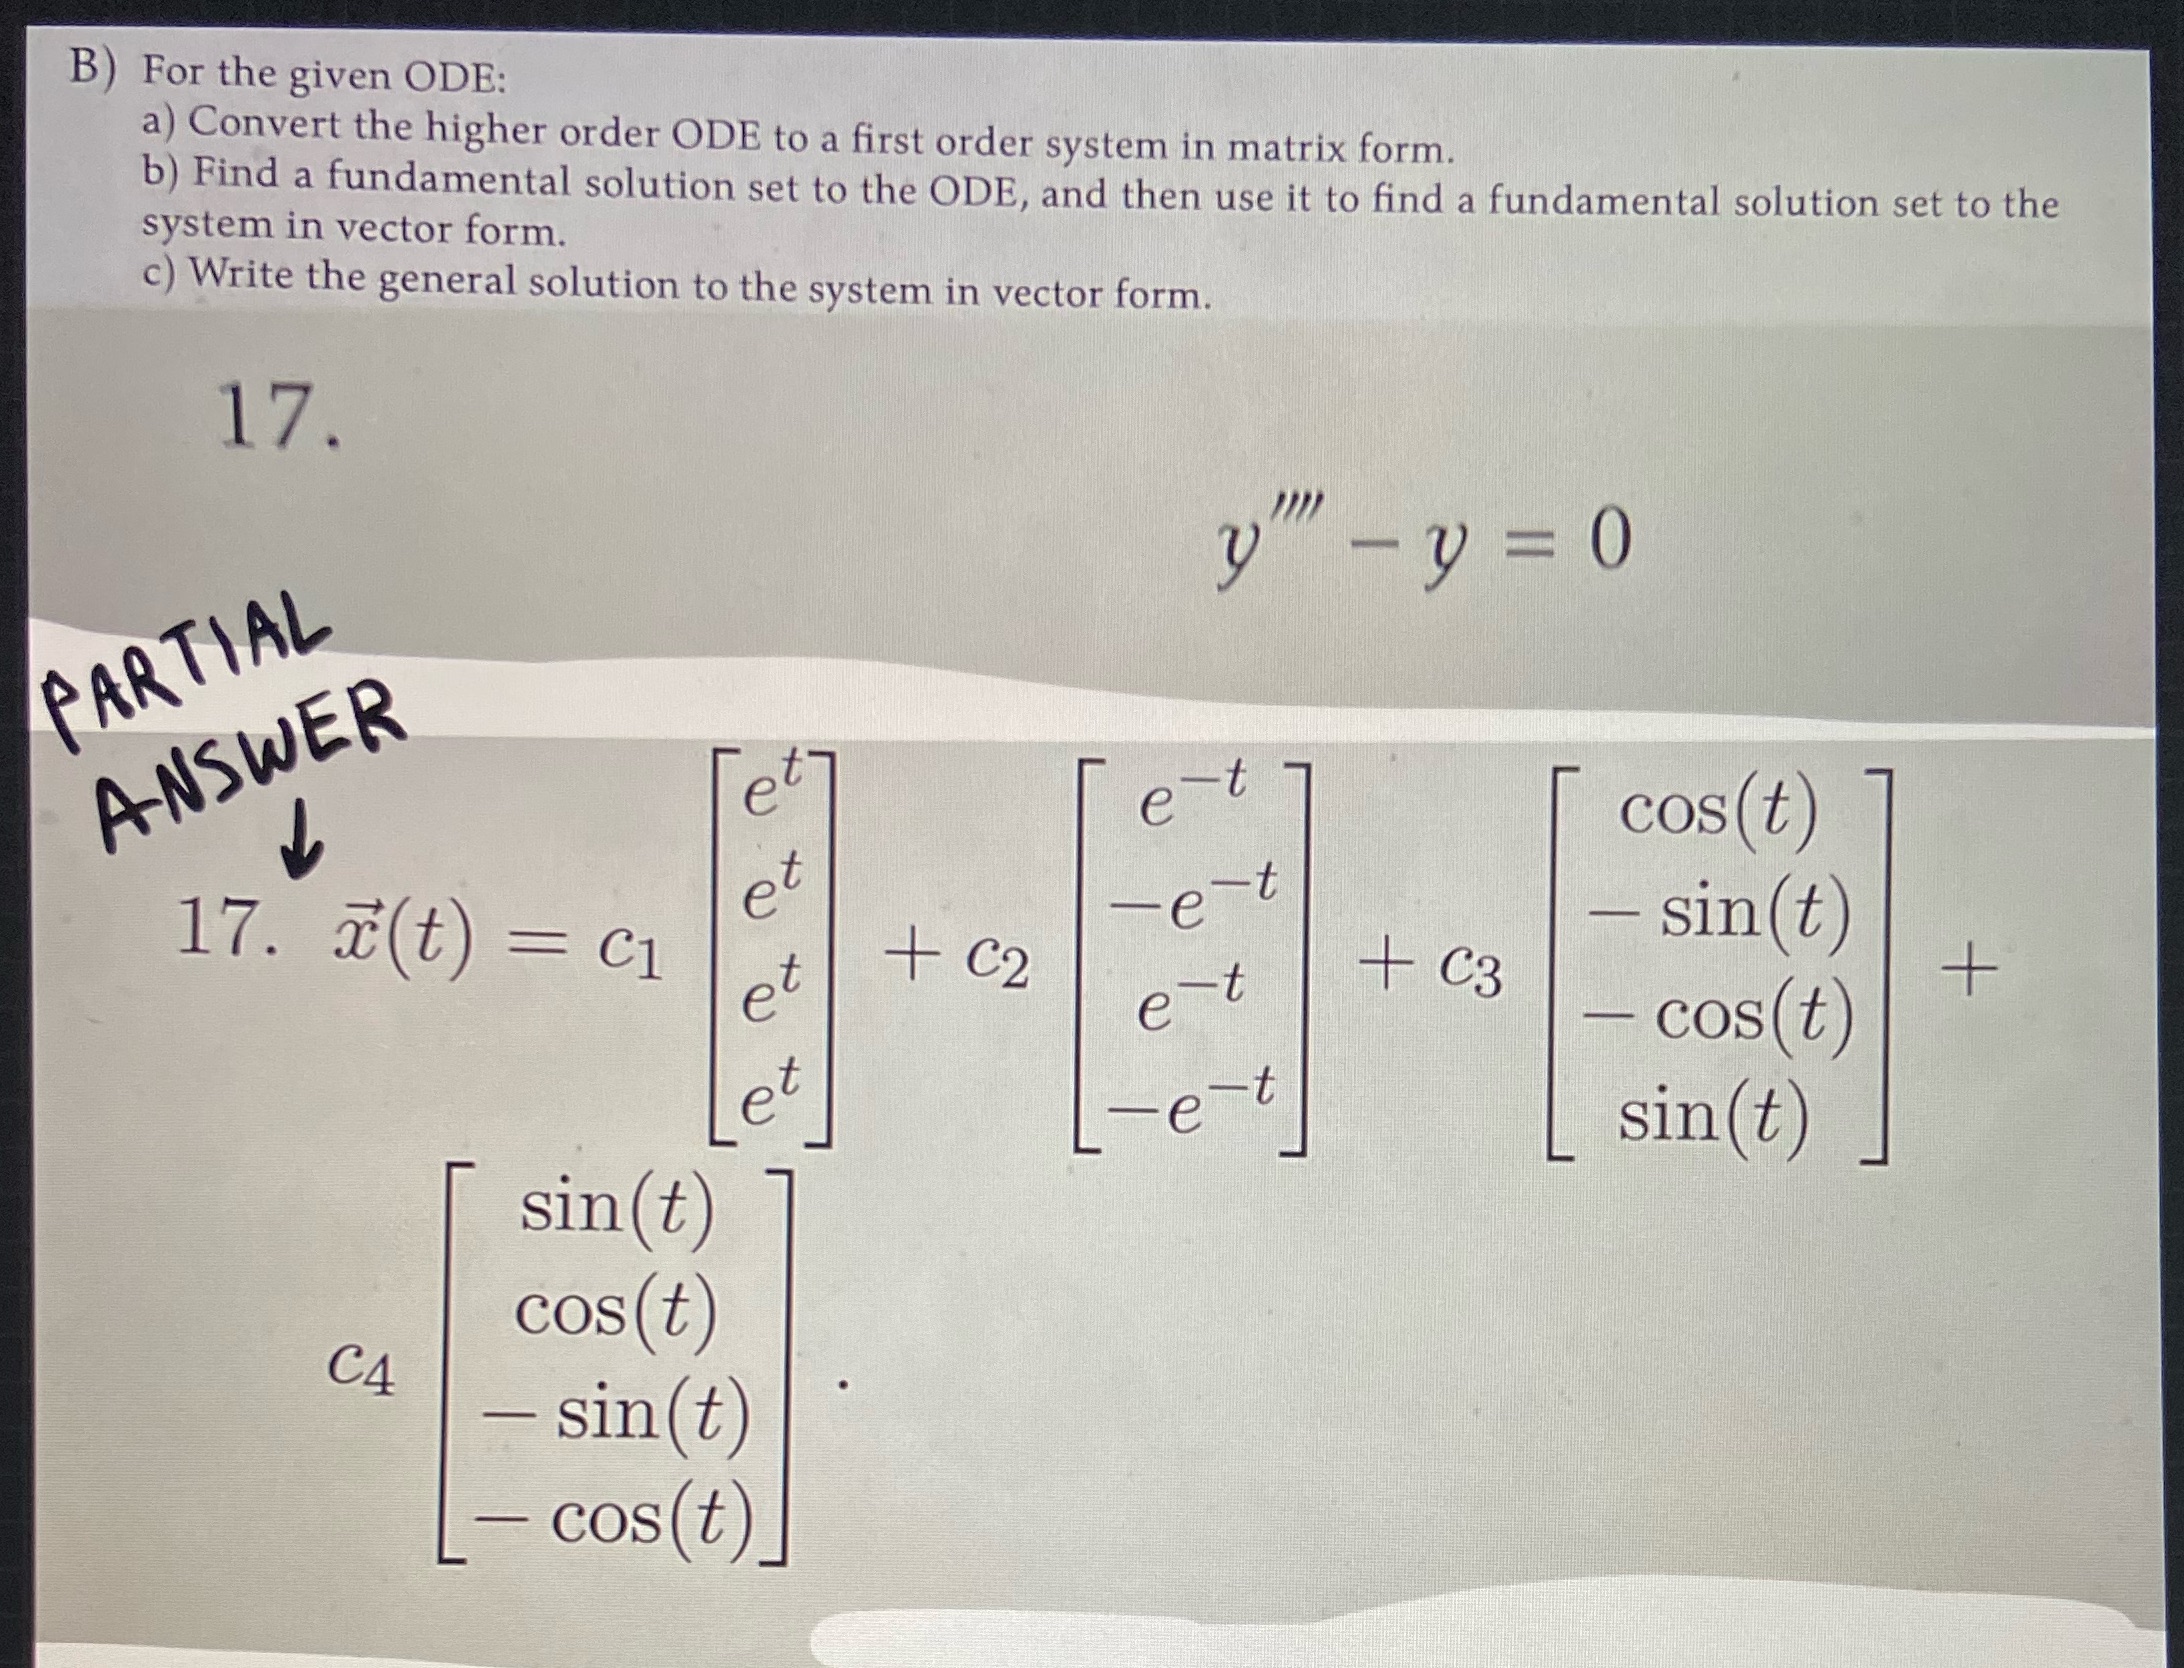 B) For the given ODE:
a) Convert the higher order ODE to a first order system in matrix form.
b) Find a fundamental solution set to the ODE, and then use it to find a fundamental solution set to the
system in vector form.
c) Write the general solution to the system in vector form.
17.
y'''' − y = 0
PARTIAL
ANSWER
↓
17. x⃗(t) = c₁ [e^t; e^t; e^t; e^t] + c₂ [e^−t; −e^−t; e^−t; −e^−t] + c₃ [cos(t); − sin(t); − cos(t); sin(t)] +
c₄ [sin(t); cos(t); − sin(t); − cos(t)].